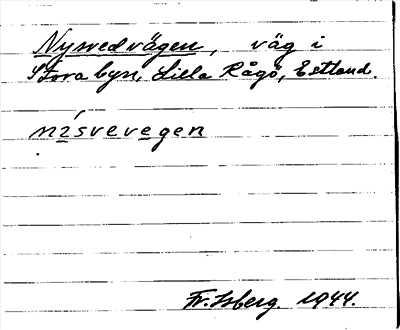 Nysvedvägen, väg i
Stora byn, Lilla Rågö, Estland.
nísvevegen
Fr. Isberg. 1944.